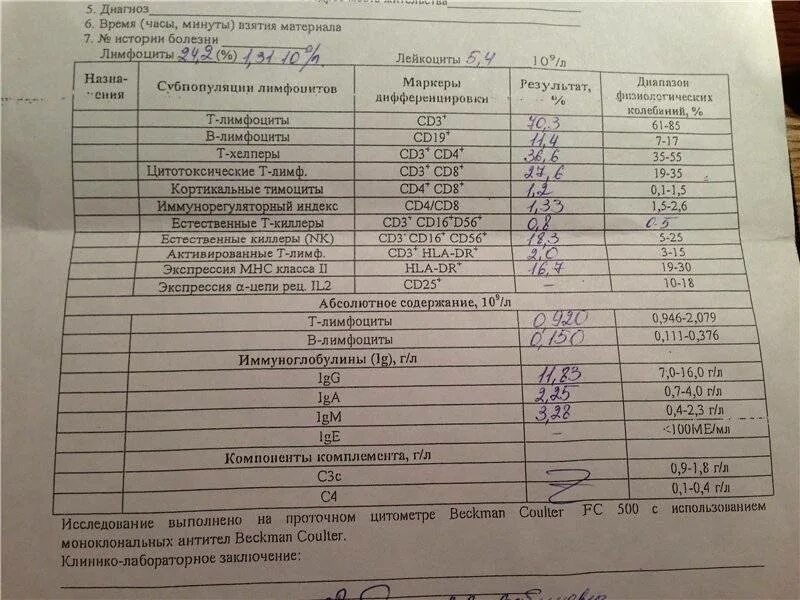 5. Диагноз
6. Время (часы, минуты) взятия материала
7. № истории болезни
Лимфоциты 24,2 (%) 1,31 10⁹/л Лейкоциты 5,4 10⁹/л
Назна-чения Субпопуляции лимфоцитов Маркеры дифференцировки Результат, % Диапазон физиологических колебаний, %
Т-лимфоциты CD3⁺ 70,3 61-85
В-лимфоциты CD19⁺ 11,4 7-17
Т-хелперы CD3⁺ CD4⁺ 36,6 35-55
Цитотоксические Т-лимф. CD3⁺ CD8⁺ 27,6 19-35
Кортикальные тимоциты CD4⁺ CD8⁺ 1,2 0,1-1,5
Иммунорегуляторный индекс CD4/CD8 1,33 1,5-2,6
Естественные Т-киллеры CD3⁺ CD16⁺D56⁺ 0,8 0-5
Естественные киллеры (NK) CD3⁻ CD16⁺ CD56⁺ 18,3 5-25
Активированные Т-лимф. CD3⁺ HLA-DR⁺ 2,0 3-15
Экспрессия МНС класса II HLA-DR⁺ 16,7 19-30
Экспрессия α-цепи рец. IL2 CD25⁺ – 10-18
Абсолютное содержание, 10⁹/л
Т-лимфоциты 0,920 0,946-2,079
В-лимфоциты 0,150 0,111-0,376
Иммуноглобулины (Ig), г/л
IgG 11,83 7,0-16,0 г/л
IgA 2,25 0,7-4,0 г/л
IgM 3,28 0,4-2,3 г/л
IgE – <100МЕ/мл
Компоненты комплемента, г/л
С3с 0,9-1,8 г/л
С4 0,1-0,4 г/л
Исследование выполнено на проточном цитометре Beckman Coulter FC 500 с использованием
моноклональных антител Beckman Coulter.
Клинико-лабораторное заключение: